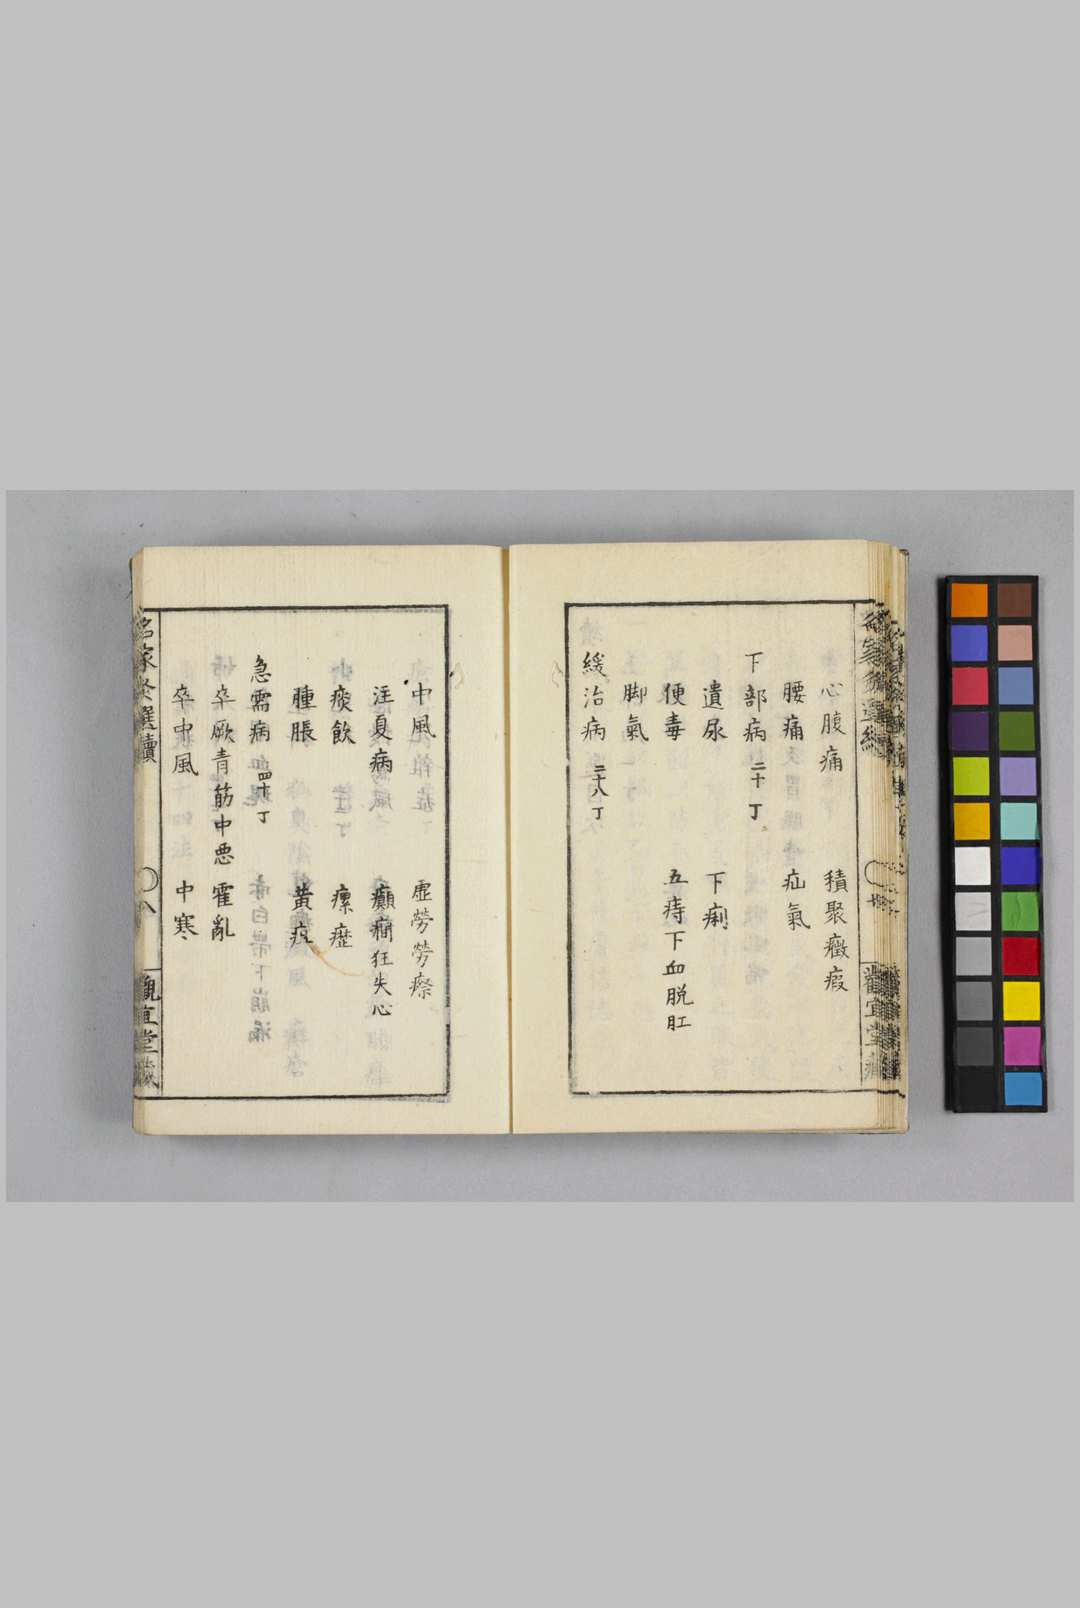 心腹痛 積聚癥瘕
腰痛 疝氣
下部病 二十丁
遺尿 下痢
便毒 五痔下血脱肛
脚氣
緩治病 二十八丁
中風 虚勞勞瘵
注夏病 癲癇狂失心
痰飲 瘰癧
腫脹 黃疸
急需病 四十丁
卒厥青筋中悪 霍亂
卒中風 中寒
名家灸選續 八 觀宜堂藏